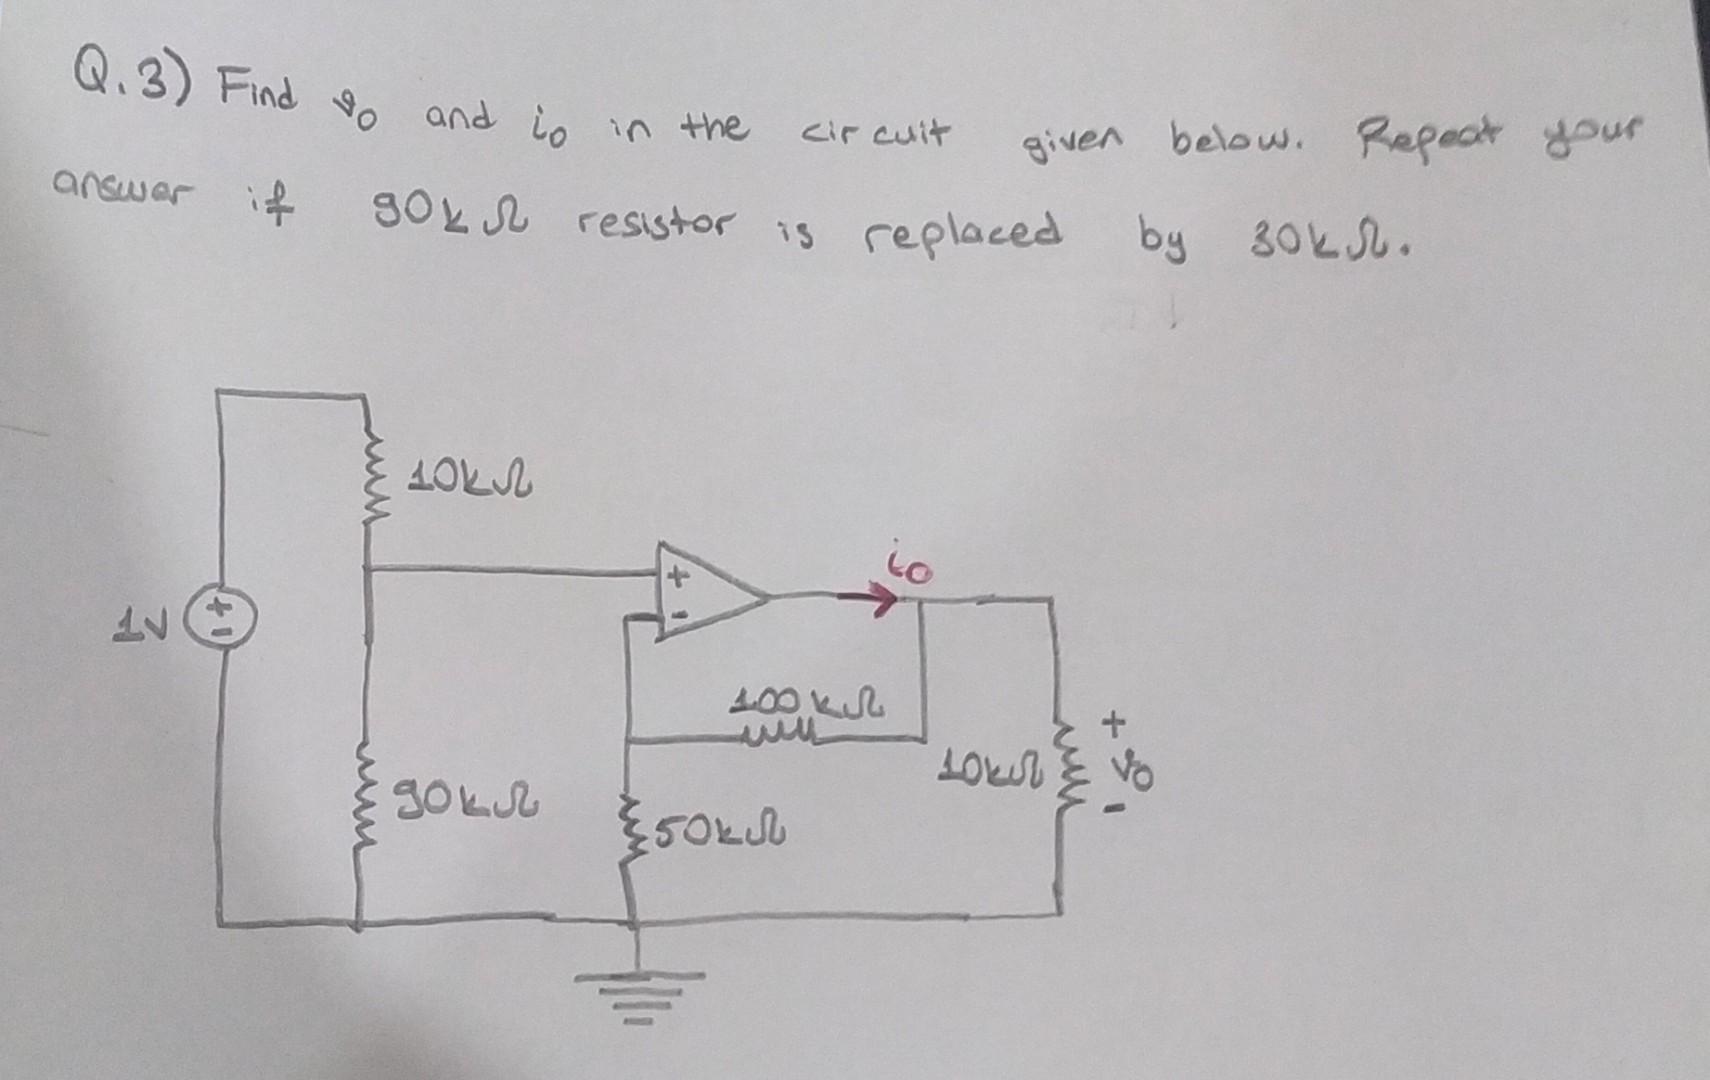 Q.3) Find vo and io in the circuit given below. Repeat your
answer if 90kΩ resistor is replaced by 30kΩ.
10kΩ
+
-
1V
+
-
io
100kΩ
90kΩ
50kΩ
10kΩ
+
vo
-